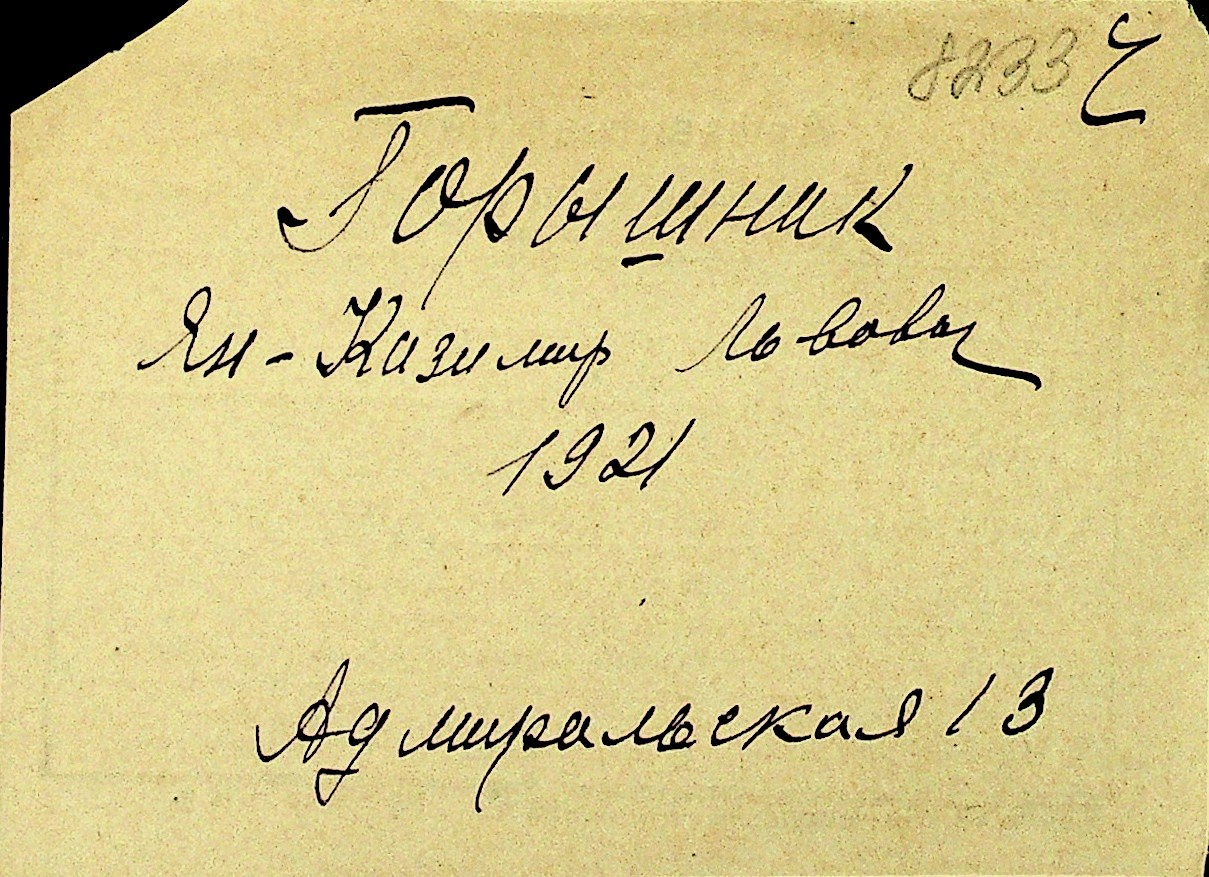 8233 Ч
Горышник
Ян-Казимир Львович
1921
Адмиральская 13